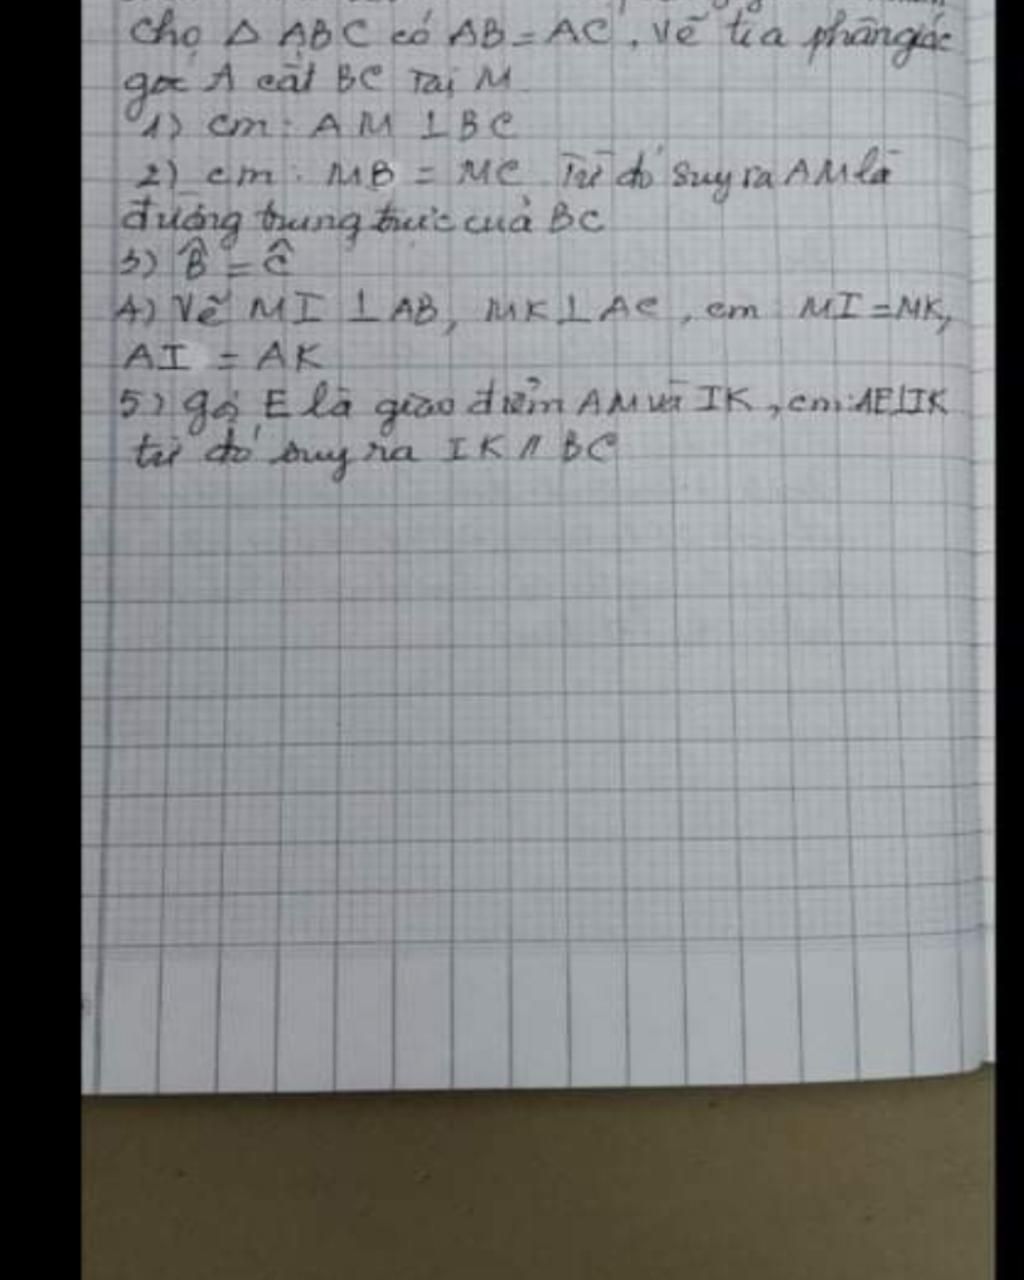 Cho Δ ABC có AB = AC, vẽ tia phân giác
góc A cắt BC tại M
1) cm: AM ⊥ BC
2) cm: MB = MC. Từ đó suy ra AM là
đường trung trực của BC
3) B̂ = Ĉ
4) Vẽ MI ⊥ AB, MK ⊥ AC, cm MI = MK,
AI = AK
5) gọi E là giao điểm AM và IK, cm: AE ⊥ IK
từ đó suy ra IK // BC